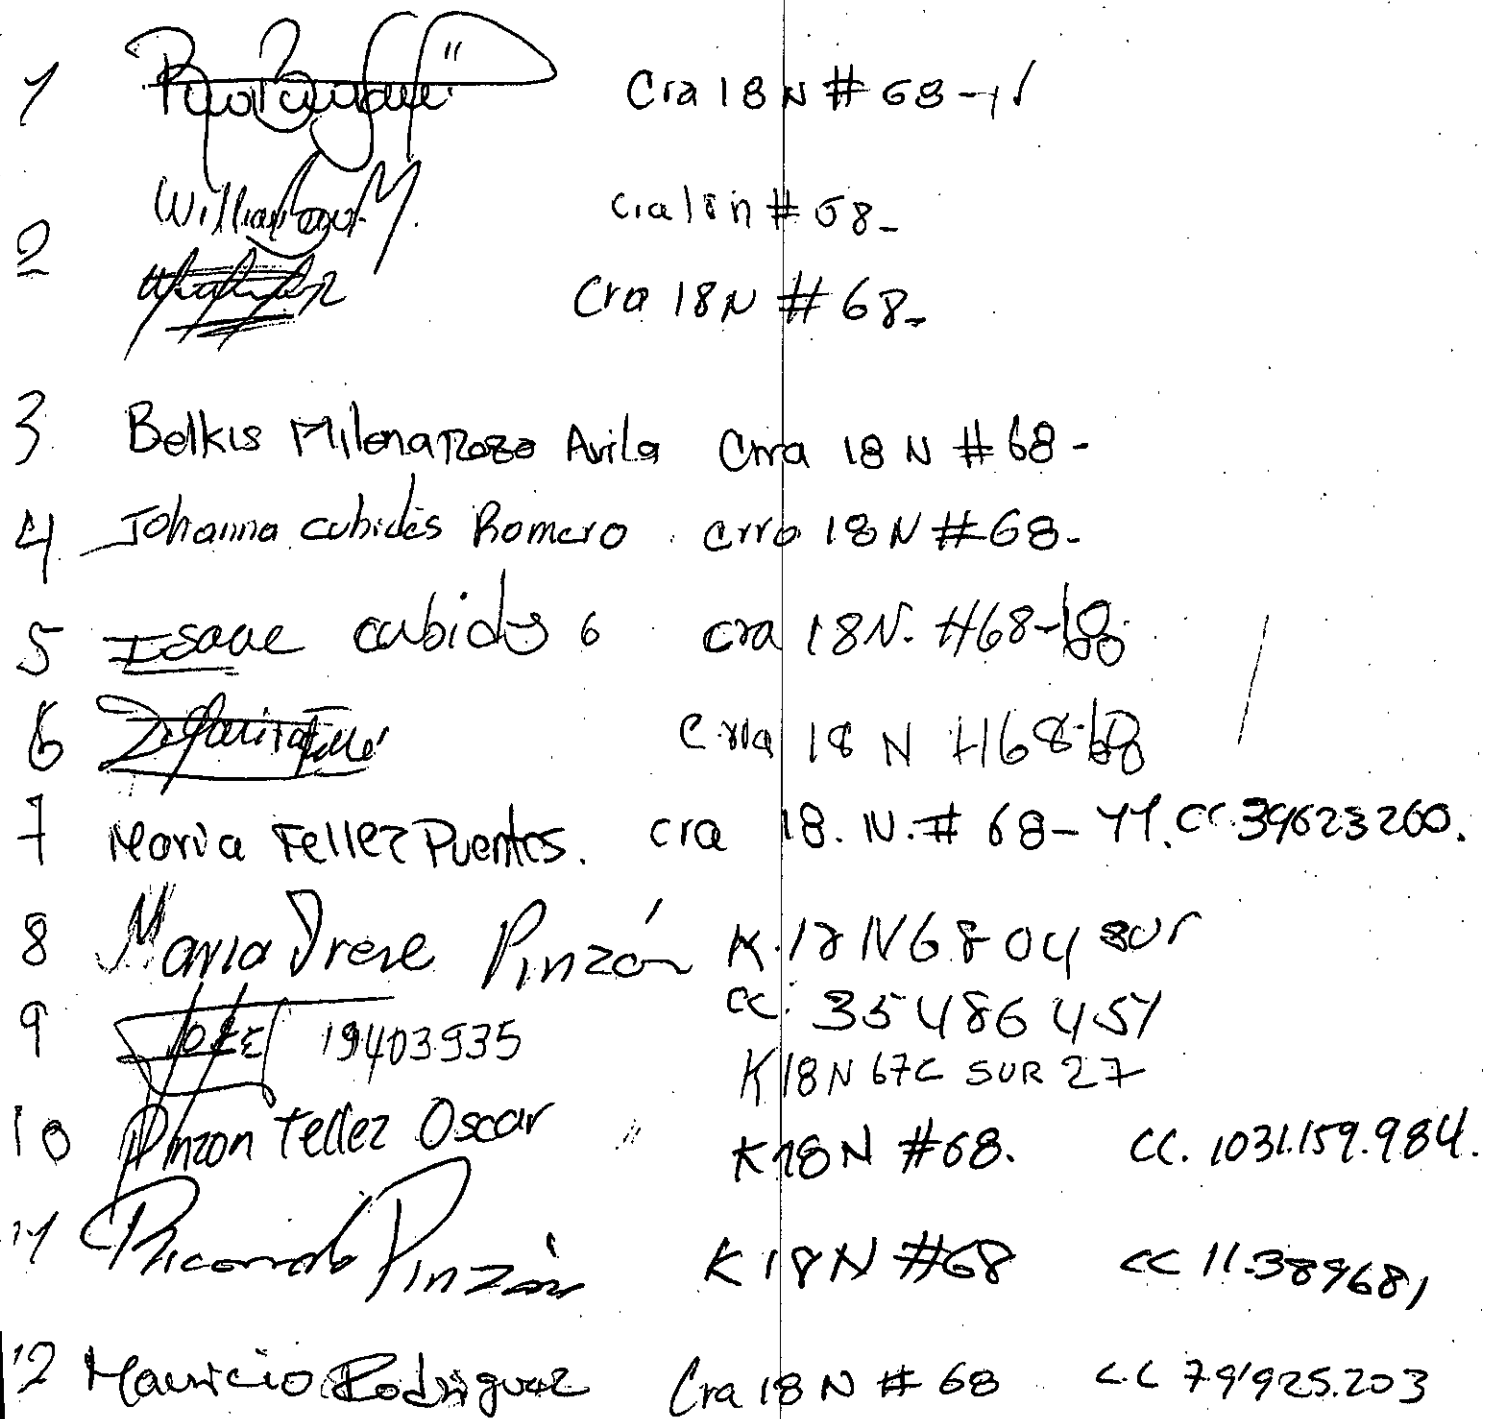 1 Cra 18 N # 68-11
2 William M. Cra 18 n # 68-
Cra 18 N # 68-
3 Belkis Milena Rozo Avila Crra 18 N # 68-
4 Johanna cubides Romero crra 18 N # 68-
5 Isaac cubides G cra 18N. #68-
6 Crra 18 N #68-
7 Maria Tellez Puentes. cra 18. N. # 68- 41. CC. 39623260.
8 Maria Irene Pinzón K. 18 N 68 04 sur
cc. 35486451
9 José 19403935 K 18 N 67C SUR 27
10 Pinzon Tellez Oscar " K 18 N #68. CC. 1031.159.984.
11 Ricardo Pinzón K 18 N #68 cc 11.389681
12 Mauricio Rodriguez Cra 18 N # 68 CC 79'925.203